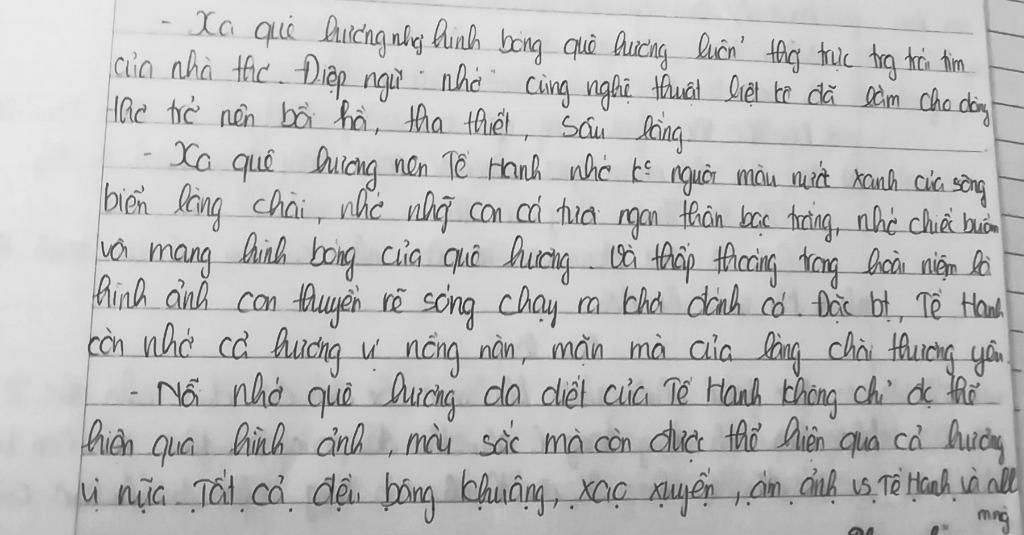 - Xa quê hương nhg hình bóng quê hương luôn thg trực trg trái tim
của nhà thơ. Điệp ngữ "nhớ" cùng nghệ thuật liệt kê đã làm cho dòng
thơ trở nên bồi hồ, tha thiết, sâu lắng
- Xa quê hương nên Tế Hanh nhớ k° nguôi màu nước xanh của sông
biển làng chài, nhớ nhữ con cá tươi ngon thân bạc trắng, nhớ chiếc buồm
vôi mang hình bóng của quê hương. Và thấp thoáng trong hoài niệm là
hình ảnh con thuyền rẽ sóng chạy ra khơi đánh cá. Đặc bt, Tế Hanh
còn nhớ cả hương vị nồng nàn, mặn mà của làng chài thương yêu.
- Nỗi nhớ quê hương da diết của Tế Hanh không chỉ đc thể
hiện qua hình ảnh, màu sắc mà còn được thể hiện qua cả hương
vị nữa. Tất cả đều bâng khuâng, xao xuyến, ám ảnh vs Tế Hanh và all
mng